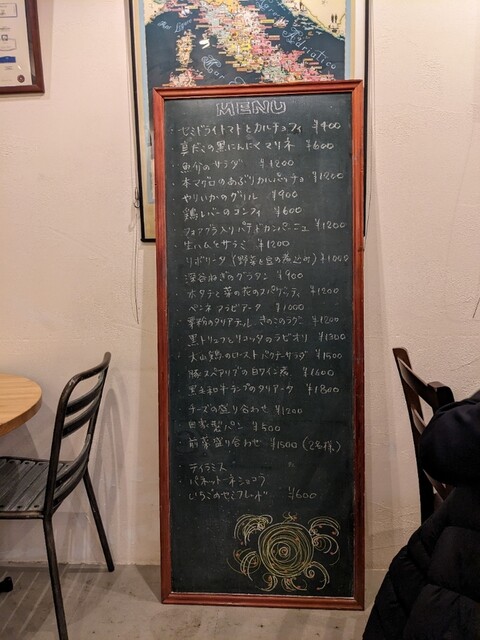 MENU
・セミドライトマトとカルチョフィ ¥900
・真だこの黒にんにくマリネ ¥600
・魚介のサラダ ¥1200
・本マグロのあぶりカルパッチョ ¥1200
・やりいかのグリル ¥900
・鶏レバーのコンフィ ¥600
・フォアグラ入りパテドカンパーニュ ¥1200
・生ハムとサラミ ¥1200
・リボリータ(野菜と豆の煮込み) ¥1000
・深谷ねぎのグラタン ¥900
・ホタテと菜の花のスパゲッティ ¥1200
・ペンネアラビアータ ¥1000
・栗粉のタリアテッレ きのこのラグー ¥1200
・黒トリュフとリコッタのラビオリ ¥1300
・大山鶏のロースト パクチーサラダ ¥1500
・豚スペアリブの白ワイン煮 ¥1600
・黒毛和牛ランプのタリアータ ¥1800
・チーズの盛り合わせ ¥1200
・自家製パン ¥500
・前菜盛り合わせ ¥1500(2名様)
・ティラミス
・パネットーネショコラ
・いちごのセミフレッド ¥600
Adriatico